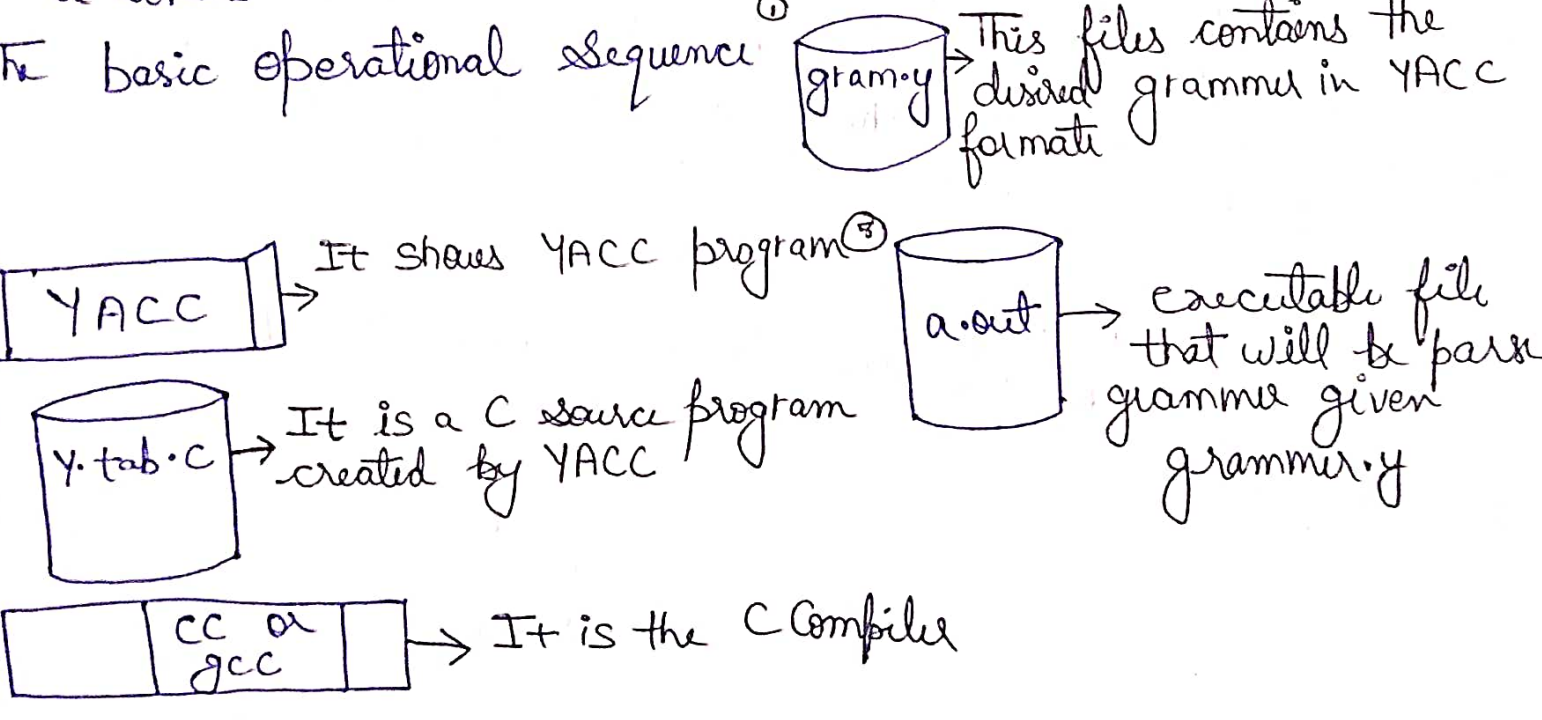 The basic operational sequence
①
gram.y
This files contains the
desired grammer in YACC
formate
YACC
It shows YACC program
a.out
executable file
that will be parse
grammer given
grammer.y
y.tab.c
It is a C source program
created by YACC
CC or
gcc
It is the C Compiler